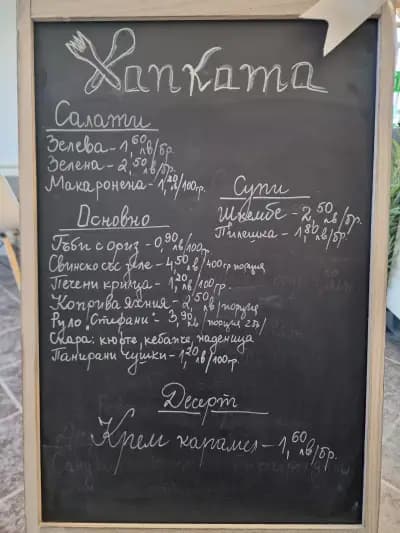 Хапката
Салати
Зелева - 1,60 лв/бр.
Зелена - 2,50 лв/бр.
Макаронена - 1,20 лв/100гр.
Супи
Шкембе - 2,50 лв/бр.
Пилешка - 1,80 лв/бр.
Основно
Гъби с ориз - 0,90 лв/100гр.
Свинско със зеле - 4,50 лв/400гр порция
Печени крилца - 1,20 лв/100гр.
Коприва яхния - 2,50 лв/порция
Руло "Стефани" - 3,90 лв/порция
Скара: кюфте, кебапче, наденица
Панирани чушки - 1,20 лв/100гр.
Десерт
Крем карамел - 1,60 лв/бр.